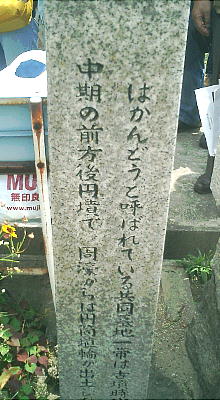 はかんどうと呼ばれている共同墓地一帯は古墳時
中期の前方後円墳で 周濠からは円筒埴輪が出土し
MU
無印良
www.muj